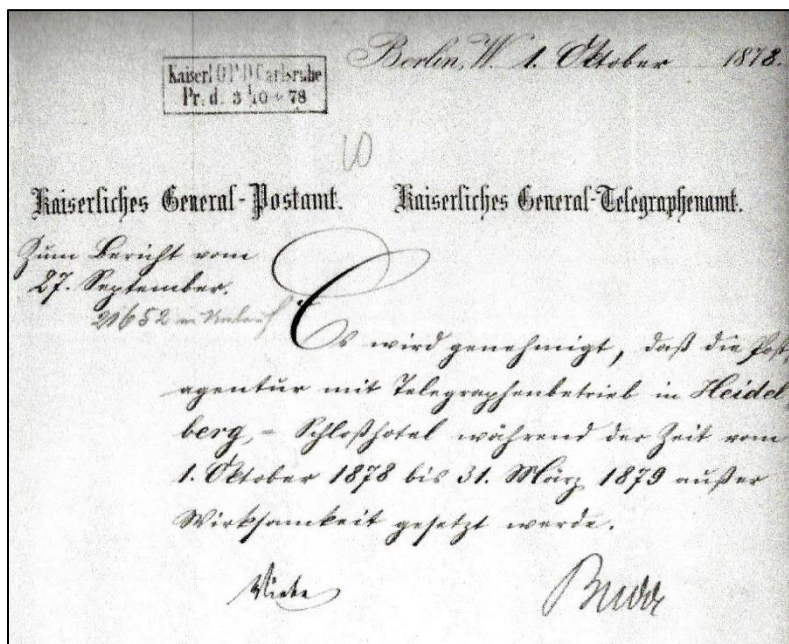 Berlin, W. 1. Oktober 1878.
Kaiserl O P D Carlsruhe
Pr. d. 3 10 78
10
Kaiserliches General-Postamt. Kaiserliches General-Telegraphenamt.
Zum Bericht vom
27. September.
21652
Es wird genehmigt, daß die Post-
agentur mit Telegraphenbetrieb in Heidel-
berg, - Schloßhotel während der Zeit vom
1. Oktober 1878 bis 31. März 1879 außer
Wirksamkeit gesetzt werde.
Wiebe Budde